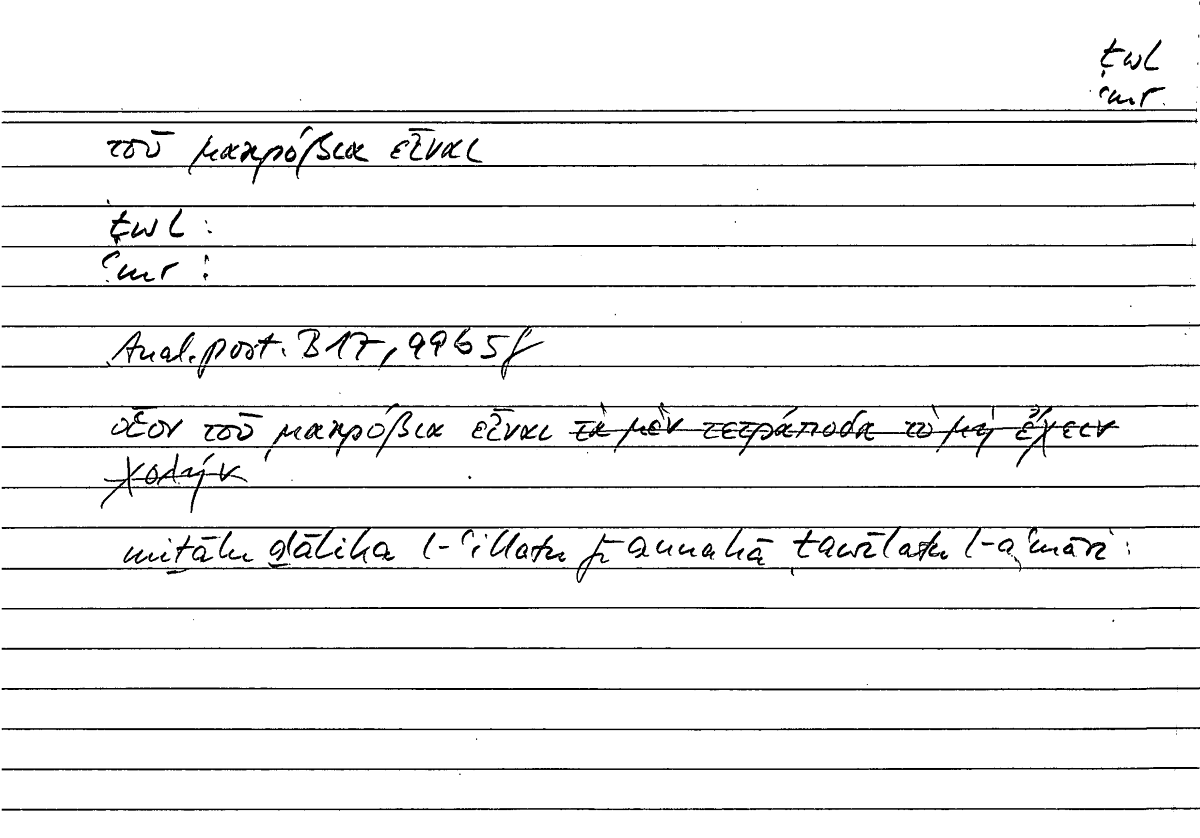 ṭwl
ʿmr
τοῦ μακρόβια εἶναι
ṭwl :
ʿmr :
Anal. post. B 17, 99b5f
οἷον τοῦ μακρόβια εἶναι τὰ μὲν τετράποδα τὸ μὴ ἔχειν
χολήν
miṯālu ḏālika l-ʿillatu fī annahā ṭawīlatu l-aʿmāri :